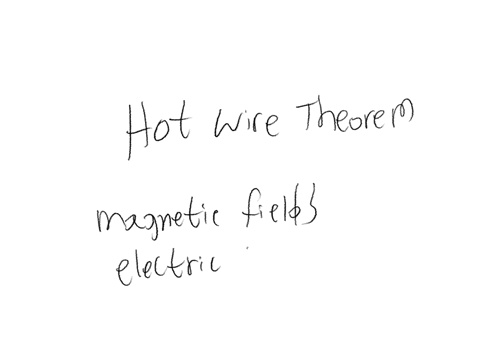 Hot Wire Theorem
magnetic fields
electric